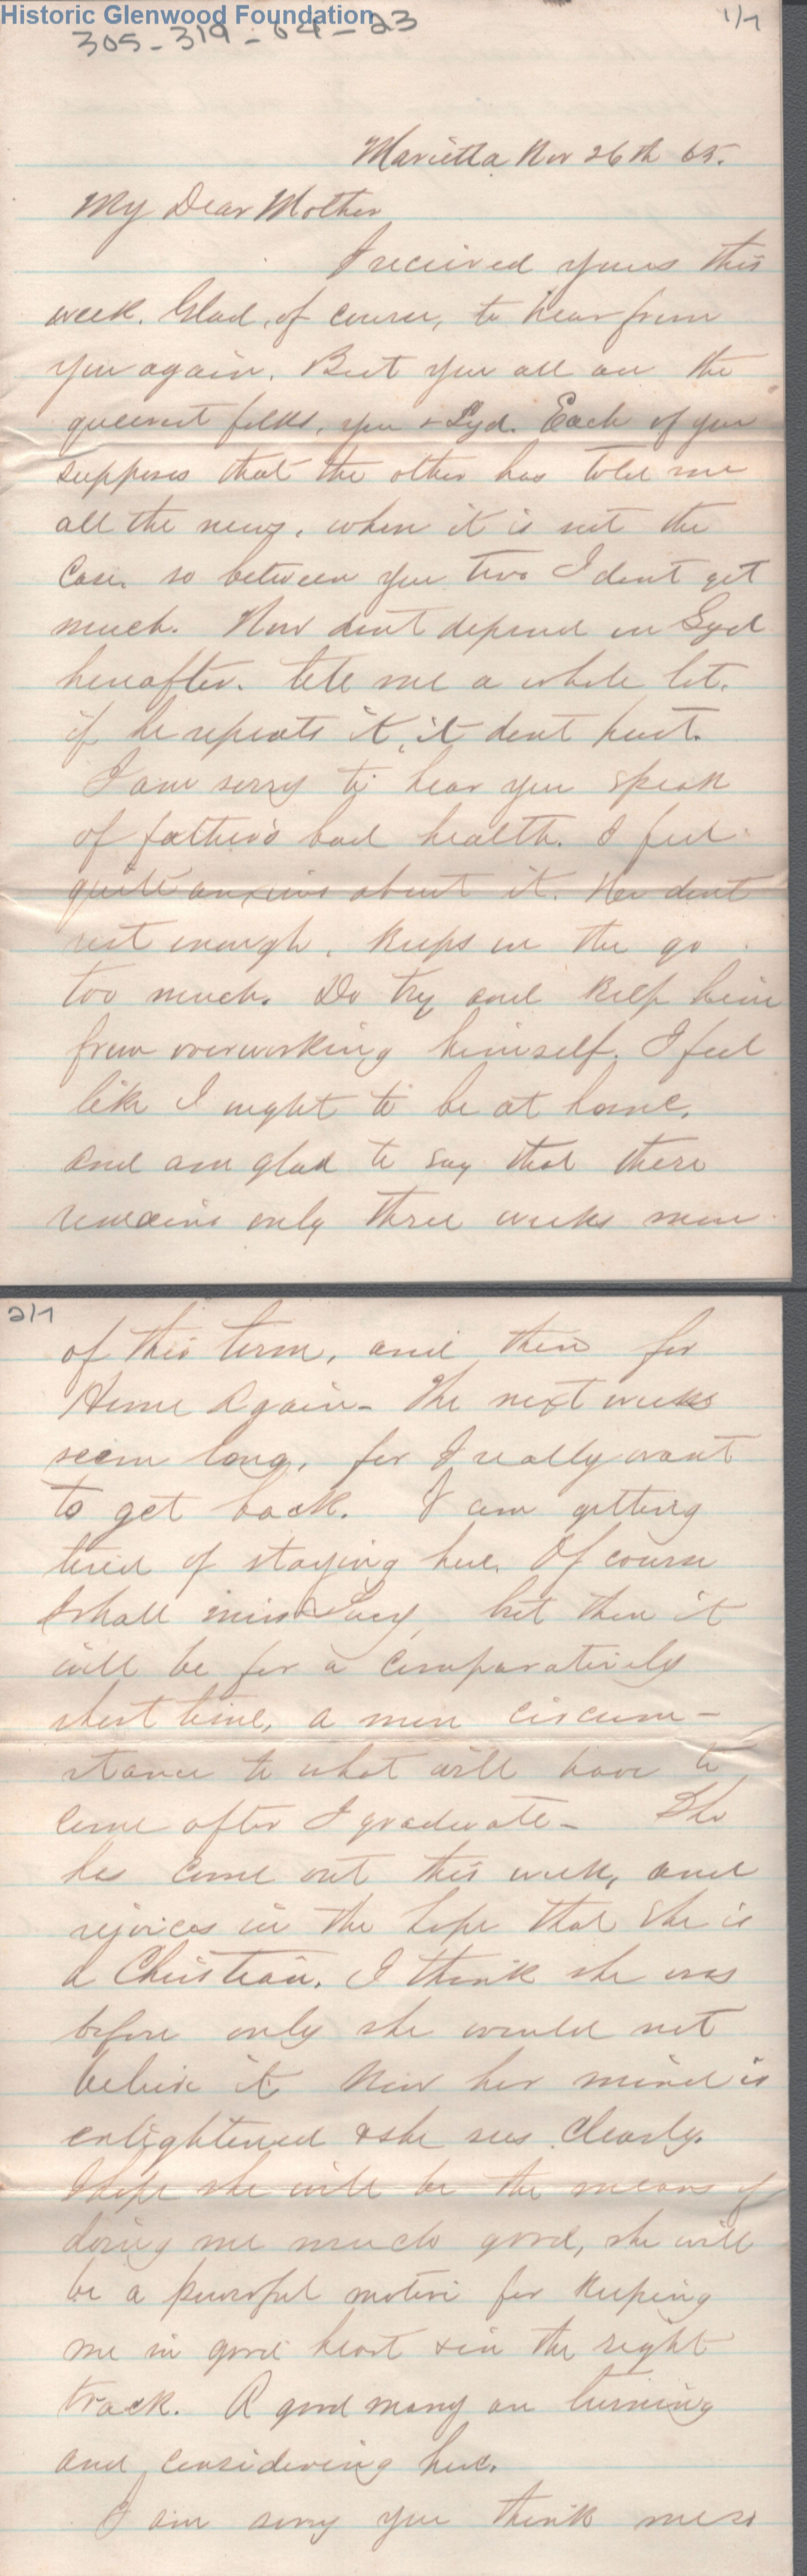 Historic Glenwood Foundation
305-319-64-23
1/7
Marietta Nov 26th 65.
My Dear Mother
I received yours this
week. Glad, of course, to hear from
you again. But you all are the
queerest folks, you & Syd. Each of you
supposes that the other has told me
all the news, when it is not the
case. so between you two I dont get
much. Now dont depend on Syd
hereafter. tell me a whole lot.
if he repeats it, it dont hurt.
I am sorry to hear you speak
of father's bad health. I feel
quite anxious about it. He dont
rest enough. keeps on the go
too much. Do try and keep him
from overworking himself. I feel
like I ought to be at home.
and am glad to say that there
remains only three weeks more
2/7
of this term, and then for
Home Again - The next weeks
seem long, for I really want
to get back. I am getting
tired of staying here. Of course
I shall miss Lucy, but then it
will be for a comparatively
short time, a mere circum-
stance to what will have to
come after I graduate - She
has come out this week, and
rejoices in the hope that she is
a Christian. I think she was
before only she would not
believe it. Now her mind is
enlightened & she sees clearly.
I hope she will be the means of
doing me much good, she will
be a powerful motive for keeping
me in good heart & in the right
track. A good many are turning
and considering here.
I am sorry you think